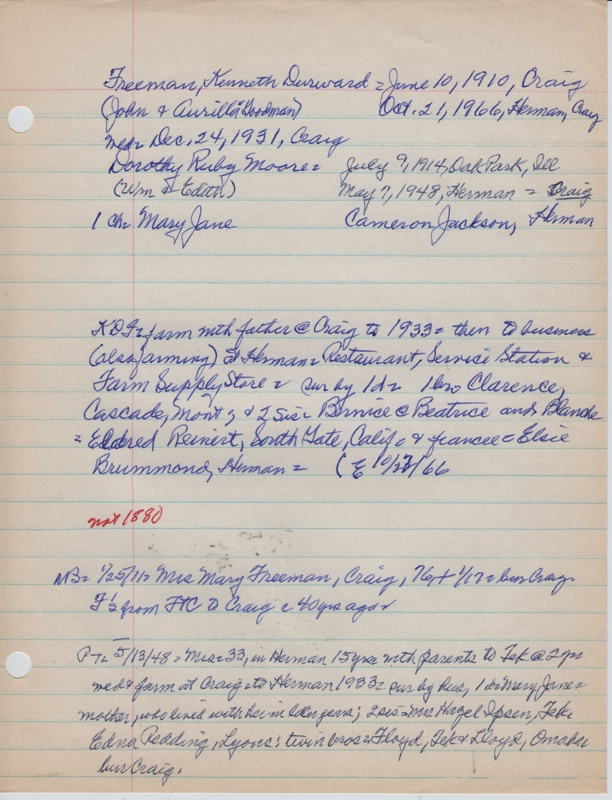 Freeman, Kenneth Durward = June 10, 1910, Craig
(John & Aurilla Goodman) Oct. 21, 1966, Herman, Craig
wed = Dec. 24, 1931, Craig
Dorothy Ruby Moore = July 9, 1914, Oak Park, Ill
(Wm & Edith) May 7, 1948, Herman = Craig
1 ch = Mary Jane Cameron Jackson, Herman
KDF = farm with father @ Craig to 1933 = then to business
(also farming) @ Herman = Restaurant, Service Station &
Farm Supply Store = sur by 1 d = 1 bro Clarence,
Cascade, Mont; & 2 sis = Bernice @ Beatrice and Blanche
= Eldred Reinert, South Gate, Calif & francee = Elsie
Brummond, Herman = (E 10/27/66
not 1880
NB = 1/25/11 = Mrs Mary Freeman, Craig, 76, + 1/17 = bur Craig.
F's from FTC to Craig c 40 yrs ago
PT = 5/13/48 = Mrs = 33, in Herman 15 yrs = with parents to Tek @ 2 yr
wed & farm at Craig = to Herman 1933 = sur by hus, 1 d = Mary Jane =
mother, who lived with her in later years; 2 sis = Mrs Hazel Ipsen, Tek.
Edna Redding, Lyons; twin bros = Floyd, Tek & Lloyd, Omaha
bur Craig.